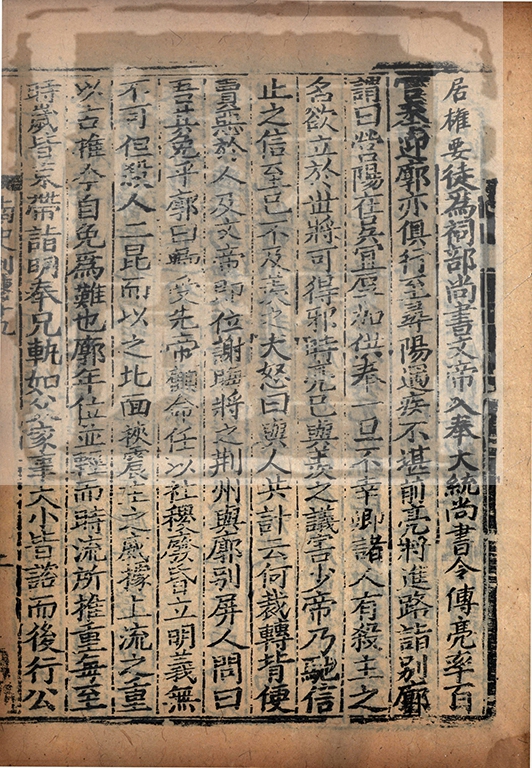 居權要徙爲祠部尚書文帝入奉大統尚書令傅亮率百
官奉迎廓亦俱行至尋陽遇疾不堪前亮將進路詣別廓
謂曰營陽在吳宜厚加供奉一旦不幸卿諸人有殺主之
名欲立於世將可得邪時亮已與羨之議害少帝乃馳信
止之信至已不及羨之大怒曰與人共計云何裁轉背便
賣惡於人及文帝即位謝晦將之荆州與廓別屏人問曰
吾其免乎廓曰卿受先帝顧命任以社稷廢昏立明義無
不可但殺人二昆而以之北面挾震主之威據上流之重
以古推今自免爲難也廓年位並輕而時流所推重每至
時歲皆束帶詣門奉兄軌如父家事大小皆諮而後行公
南史列傳十九